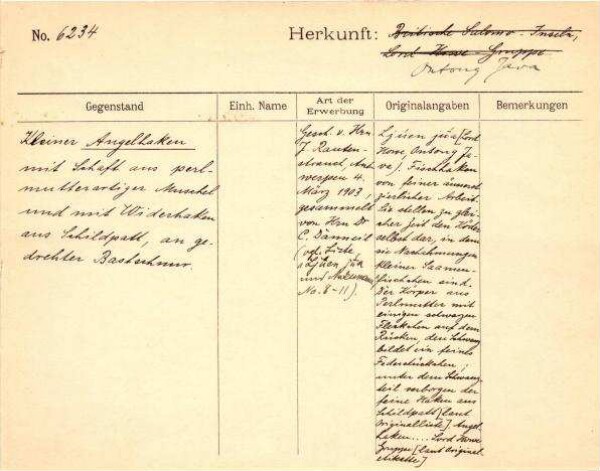 No. 6234
Herkunft: Britische Salomo-Inseln,
Lord Howe-Gruppe
Ontong Java
Gegenstand
Einh. Name
Art der
Erwerbung
Originalangaben
Bemerkungen
Kleiner Angelhaken
mit Schaft aus perl-
mutterartiger Muschel
und mit Widerhaken
aus Schildpatt, an ge-
drehter Bastschnur.
Gesch. v. Hrn
J. Rauten-
strauch, Ant
werpen 4.
März 1903,
gesammelt
von Hrn Dr
C. Dänneil
(vgl. Liste
Ljuen júa
und
No. 8-11).
Ljuen júa [Lord
Howe Ontong Ja-
va]. Fischhaken
von feiner äusserst
zierlicher Arbeit.
Sie stellen zu glei-
cher Zeit den Köder
selbst dar, in dem
sie Nachahmungen
kleiner
fischchen sind.
Der Körper aus
Perlmutter mit
einigen schwarzen
Fleckchen auf dem
Rücken, den Schwanz
bildet ein feines
Federstückchen,
unter dem Schwanz-
teil verborgen der
feine Haken aus
Schildpatt [laut
Originalliste]. Angel-
haken.... Lord Howe
Gruppe [laut Original-
etikette]